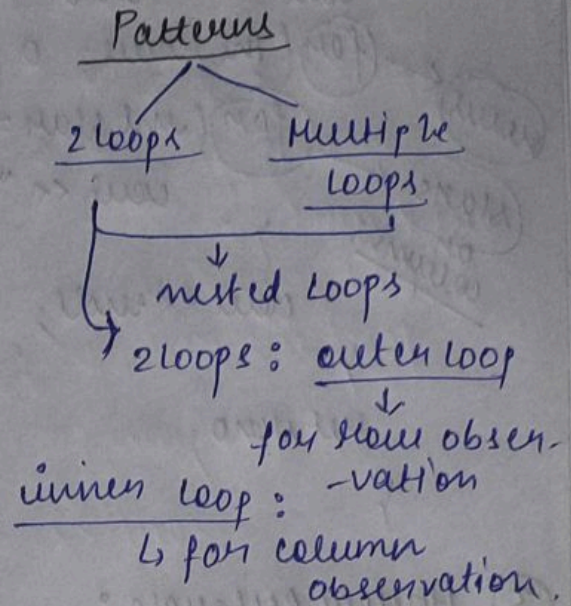 Patterns
2 loops Multiple
loops
nested loops
2 loops : outer loop
for row obser-
-vation
inner loop :
for column
observation.